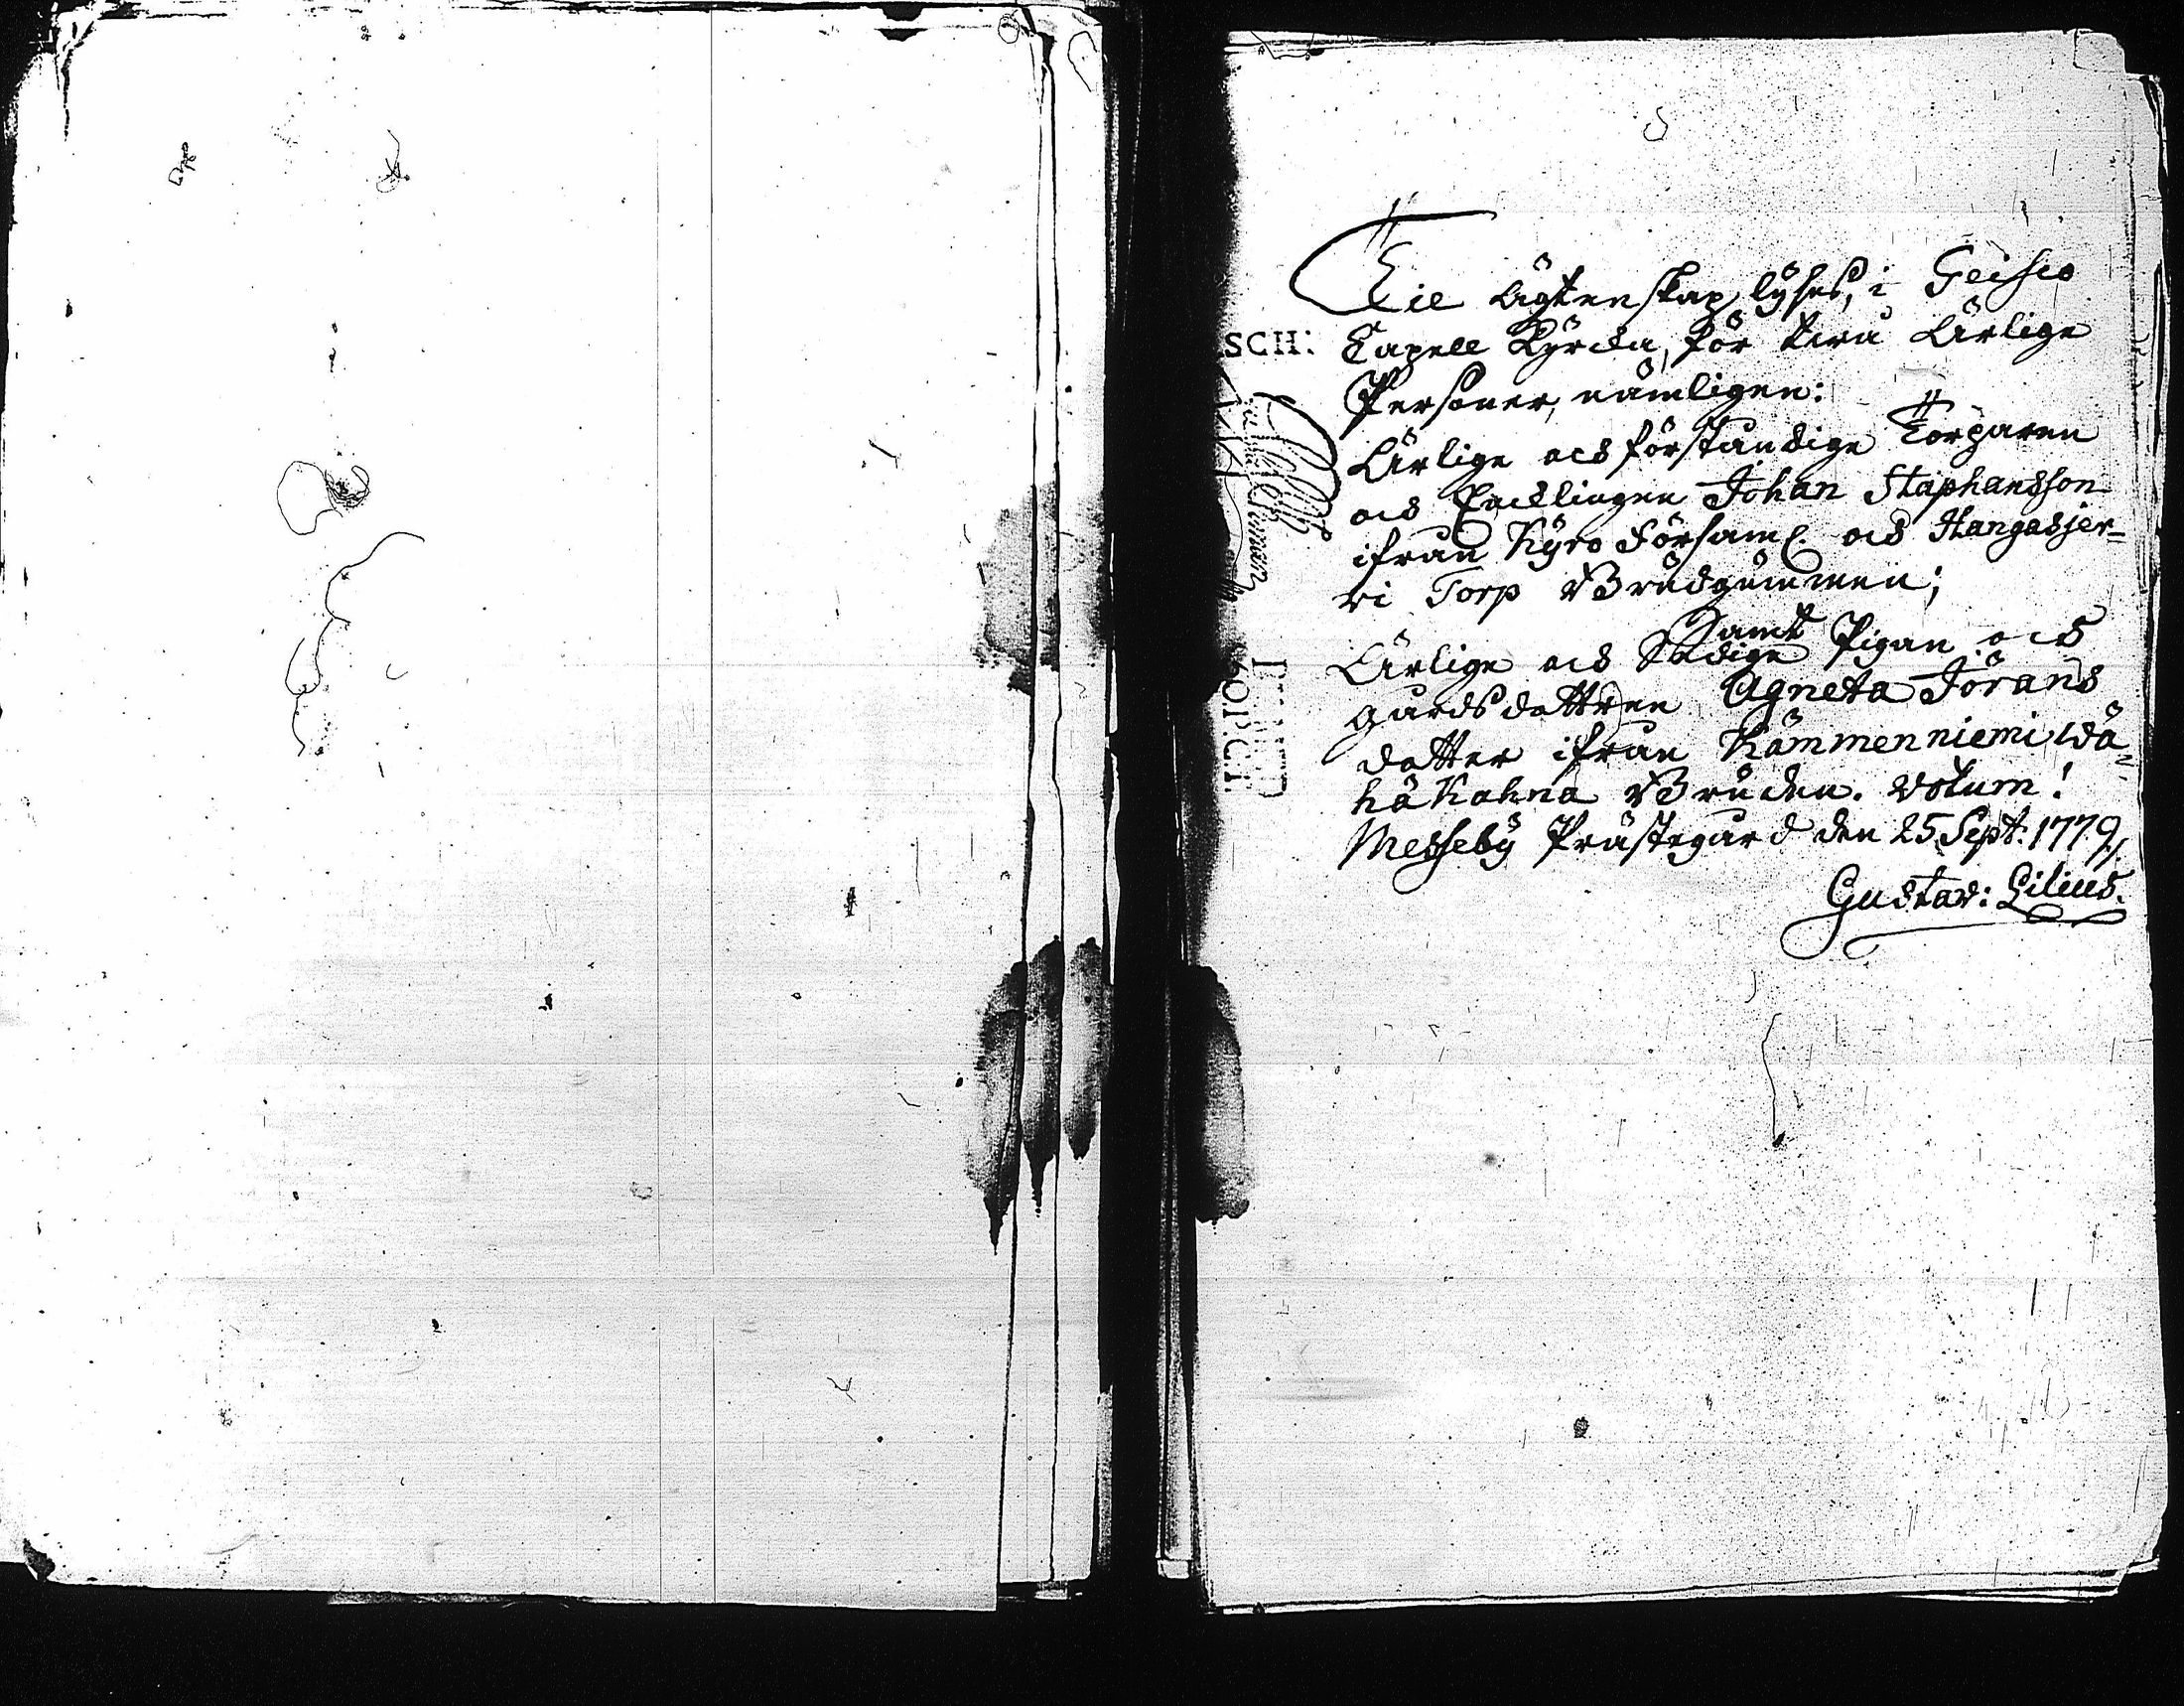 Til Ägtenskap lyses, i Teisco
Capell Kyrcka, för twå Ärlige
Personer, nämligen:
Ärlige och förståndige Torparen
och Enklingen Johan Staphansson
ifrån Kyro Församl. och Hangasjer=
vi Torp Brudgummen;
Samt
Ärlige och Sedige Pigan och
gårdsdottren Agneta Jörans
dotter ifrån Kämmenniemi Wä
hä Kahna Bruden. Votum!
Messeby Prästegård den 25 Sept: 1779
Gustav: Lilius.
SCH: